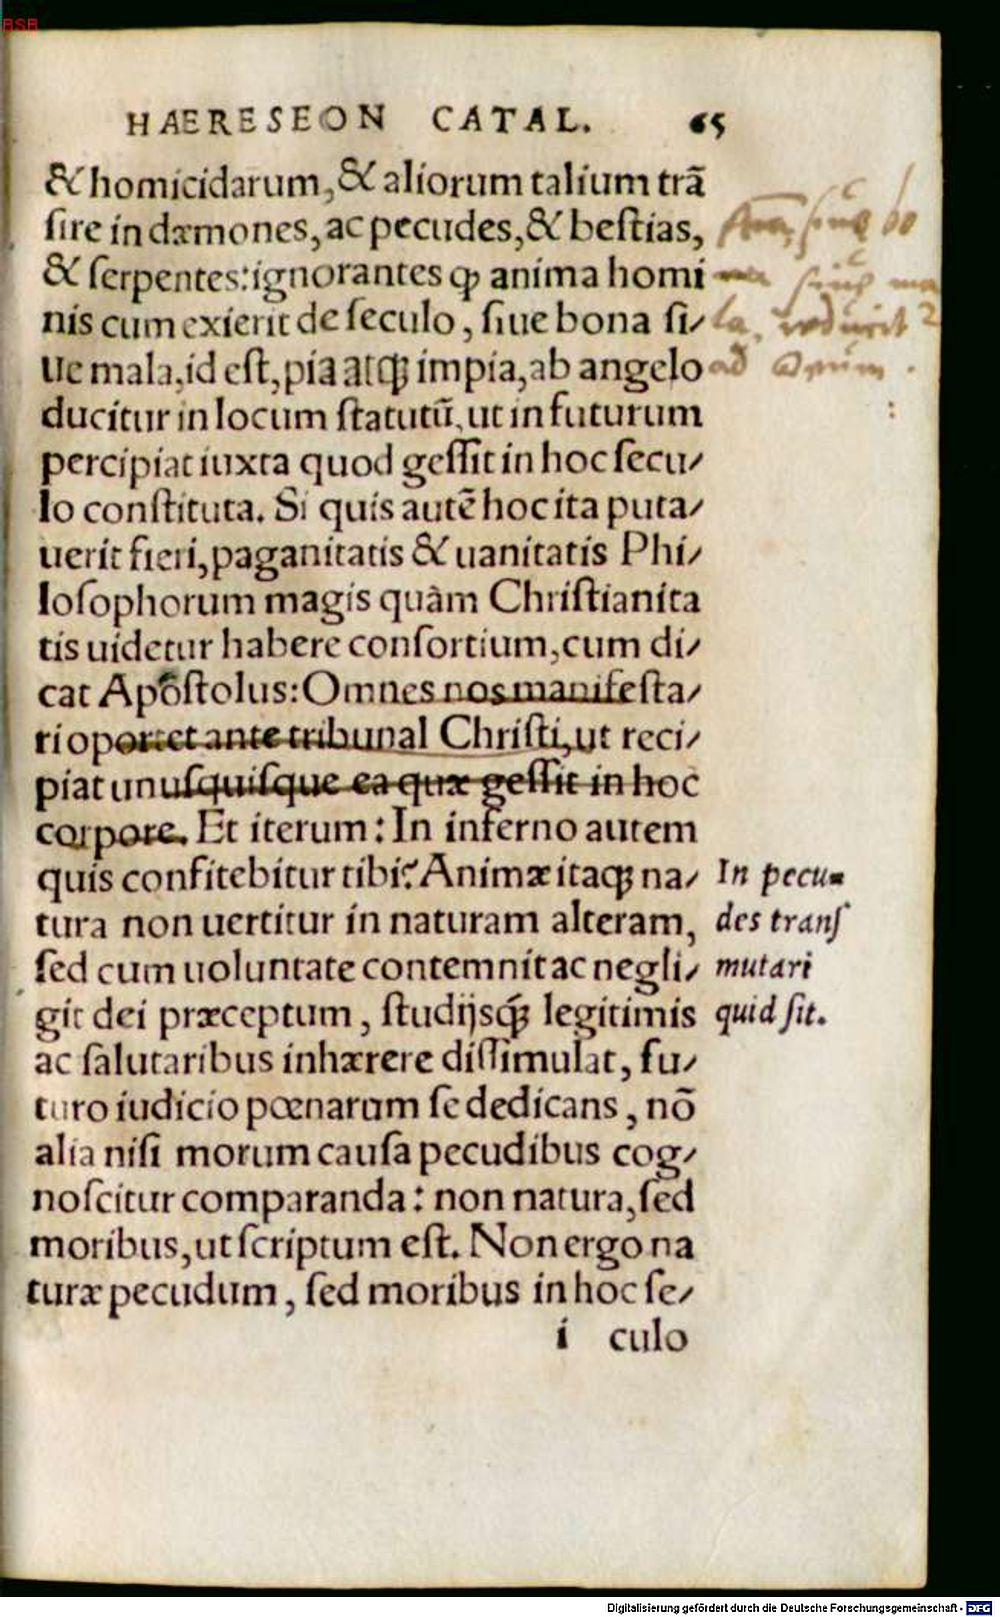 BSB
HAERESEON CATAL. 65
& homicidarum, & aliorum talium trā
ſire in dæmones, ac pecudes, & beſtias,
& ſerpentes: ignorantes ꝙ anima homi
nis cum exierit de ſeculo, ſiue bona ſi/
ue mala, id eſt, pia atqꝫ impia, ab angelo
ducitur in locum ſtatutū, ut in futurum
percipiat iuxta quod geſſit in hoc ſecu/
lo conſtituta. Si quis autē hoc ita puta/
uerit fieri, paganitatis & uanitatis Phi/
loſophorum magis quàm Chriſtianita
tis uidetur habere conſortium, cum di/
cat Apoſtolus: Omnes nos manifeſta/
ri oportet ante tribunal Chriſti, ut reci/
piat unuſquiſque ea quæ geſſit in hoc
corpore. Et iterum: In inferno autem
quis confitebitur tibi? Animæ itaqꝫ na/
tura non uertitur in naturam alteram,
ſed cum uoluntate contemnit ac negli/
git dei præceptum, ſtudijsqꝫ́ legitimis
ac ſalutaribus inhærere diſſimulat, fu/
turo iudicio pœnarum ſe dedicans, nō
alia niſi morum cauſa pecudibus cog/
noſcitur comparanda: non natura, ſed
moribus, ut ſcriptum eſt. Non ergo na
turæ pecudum, ſed moribus in hoc ſe/
i culo
In pecu=
des tranſ
mutari
quid ſit.
Digitalisierung gefördert durch die Deutsche Forschungsgemeinschaft - DFG